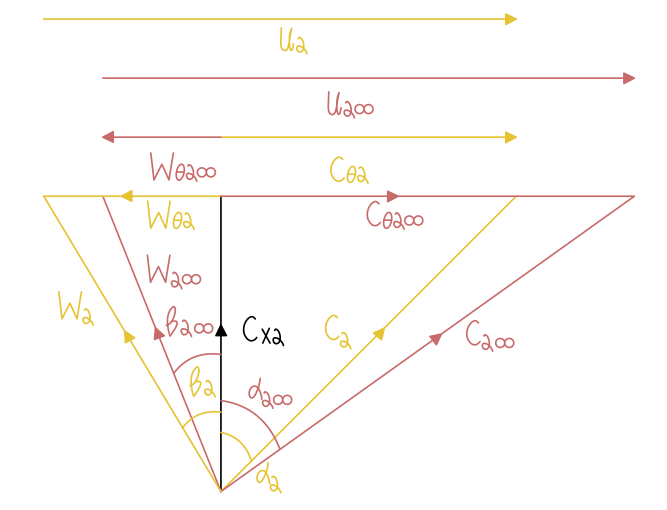 U₂
U₂∞
Wθ₂∞
Cθ₂
Wθ₂
Cθ₂∞
W₂∞
W₂
β₂∞
Cx₂
C₂
C₂∞
β₂
α₂∞
α₂